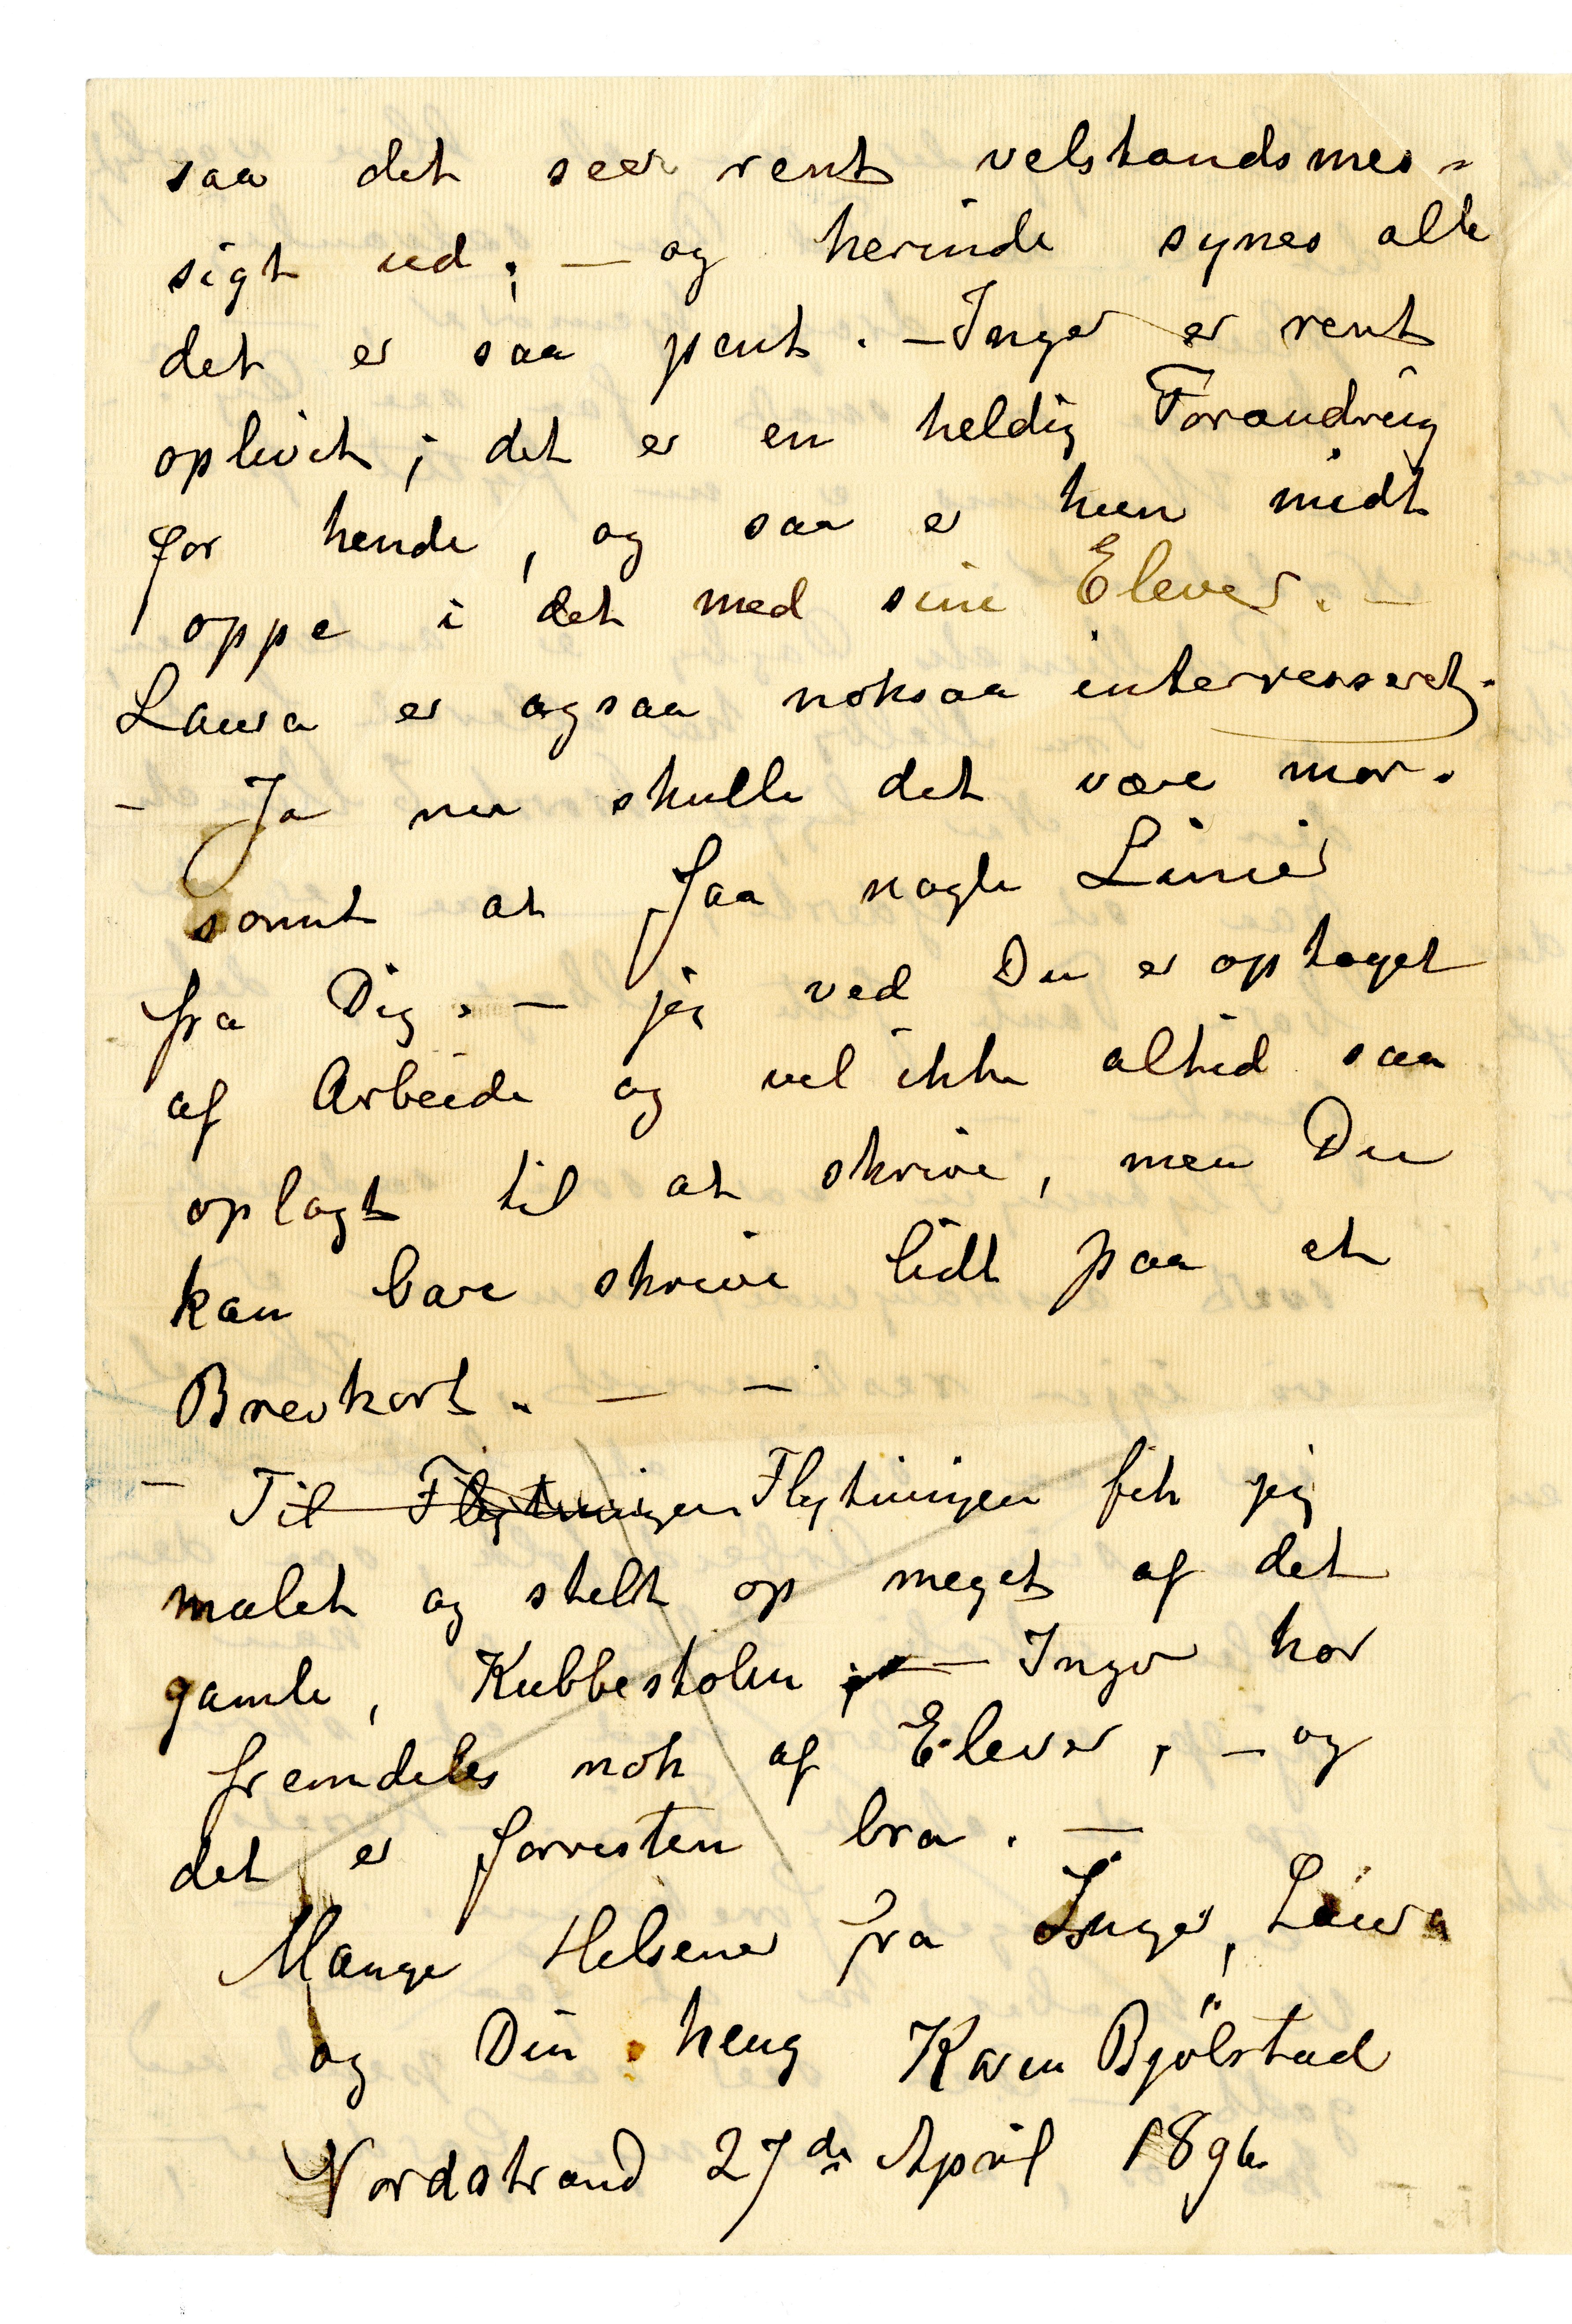 saa det seer rent velstandsmes-
sigt ud; – og herinde synes alle
det er saa pent. – Inger er rent
oplivet; det er en heldig Forandring
for hende, og saa er hun midt
oppe i det med sine Elever. –
Laura er ogsaa noksaa interresseret.
– Ja nu skulle det være mor-
somt at faa nogle Linier
fra Dig. – jeg ved Du er optaget
af Arbeide og vel ikke altid saa
oplagt til at skrive, men Du
kan bare skrive lidt paa et
Brevkort. – –
– Til Flytningen Flytningen fik jeg
malet og stelt op meget af det
gamle, Kubbestolen – Inger har
fremdeles nok af Elever, – og
det er forresten bra. –
Mange Helsener fra Inger, Laura
og Din heng Karen Bjölstad
Nordstrand 27de April 1896